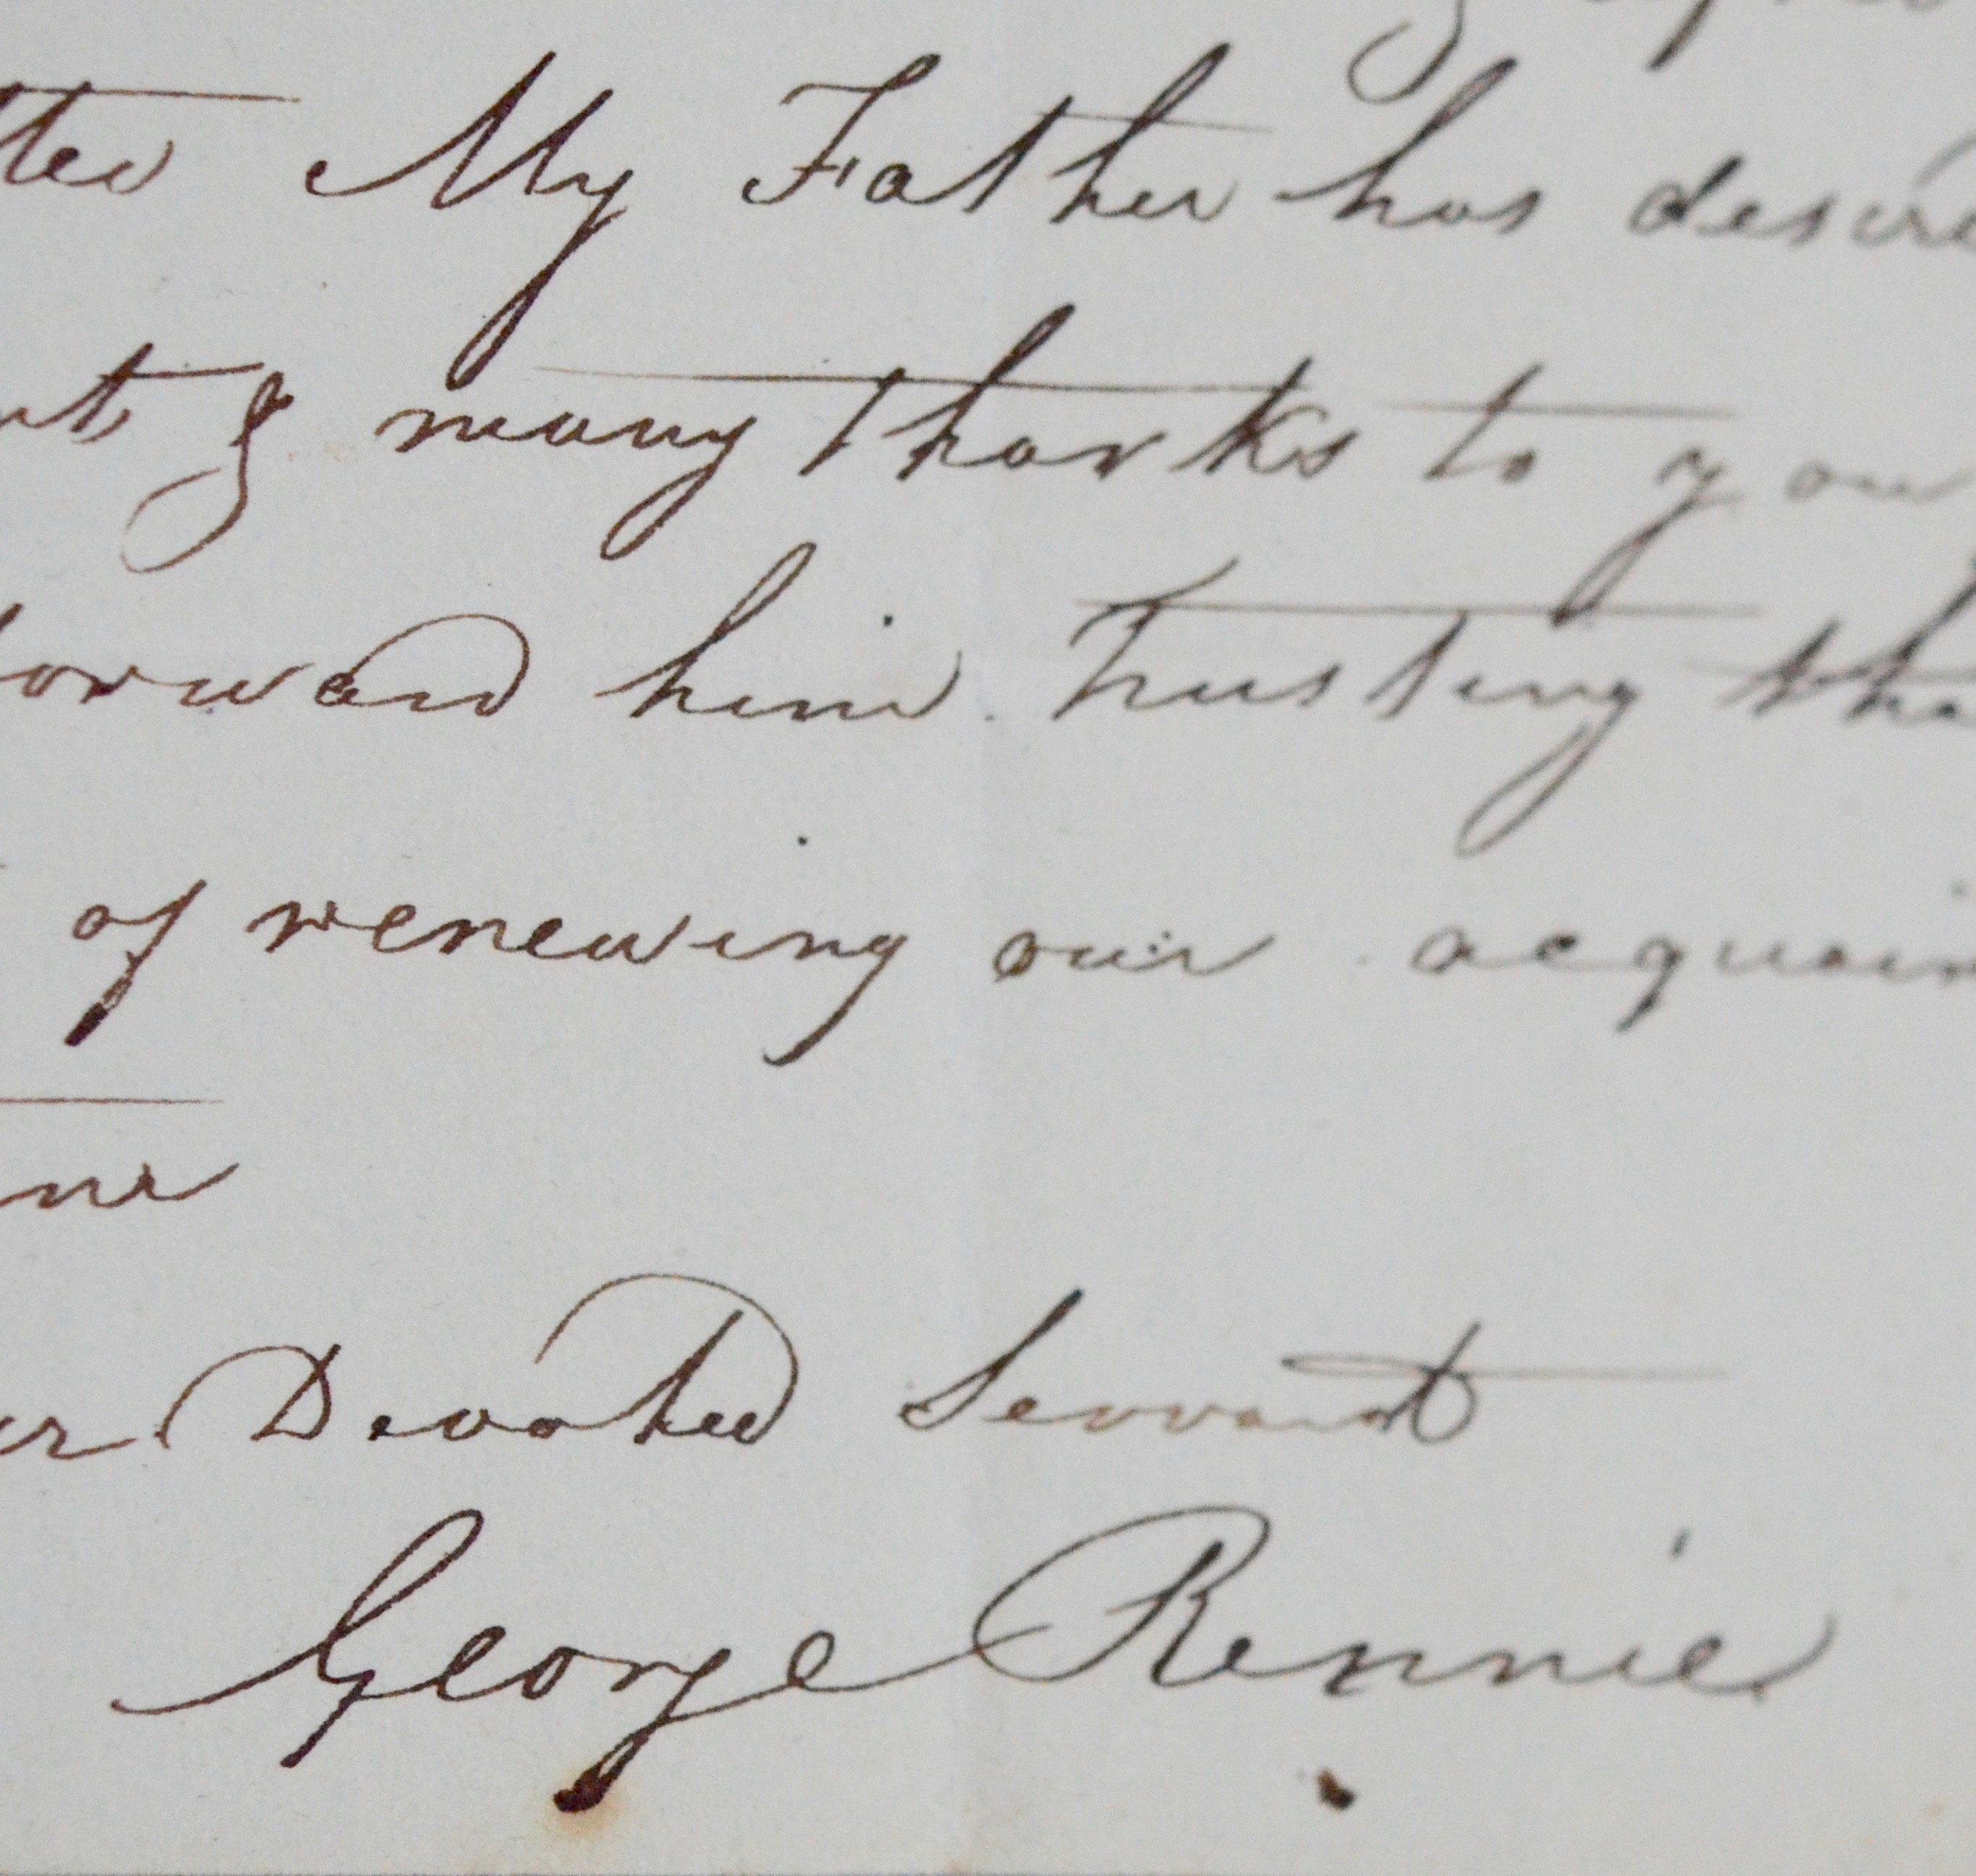 tted My Father has desire
nts & many thanks to you
forward him. Trusting tha
of renewing our acquain
me
ur Devoted Servant
George Rennie